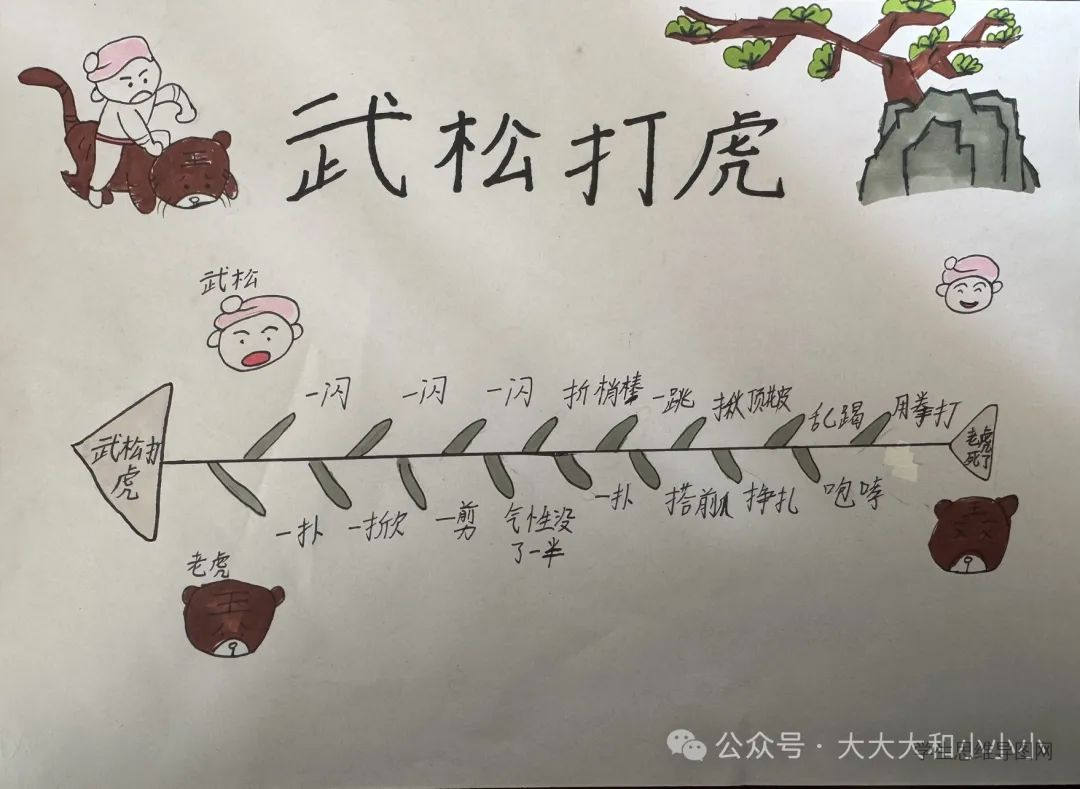 武松打虎
武松
一闪
一闪
一闪
折梢棒
一跳
揪顶皮
乱踢
用拳打
武松打
虎
老虎
死了
一扑
一掀
一剪
气性没
了一半
一扑
搭前爪
挣扎
咆哮
老虎
王
公众号·大大大和小小小
学生思维导图网